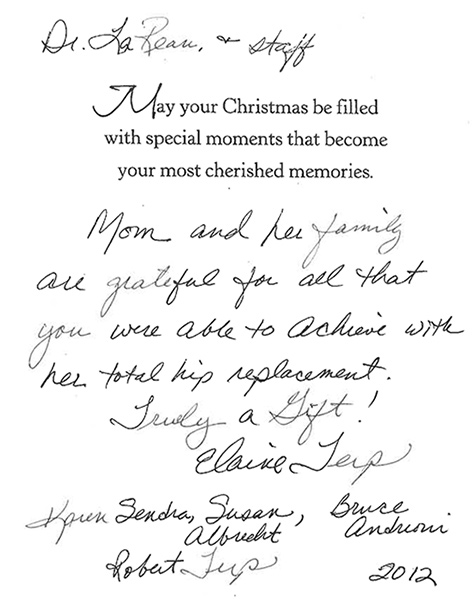 Dr. LaReau, & staff
May your Christmas be filled
with special moments that become
your most cherished memories.
Mom and her family
are grateful for all that
you were able to achieve with
her total hip replacement.
Truly a Gift!
Elaine Terp
Karen Sendra, Susan Albrecht, Bruce Andreoni
Robert Terp
2012